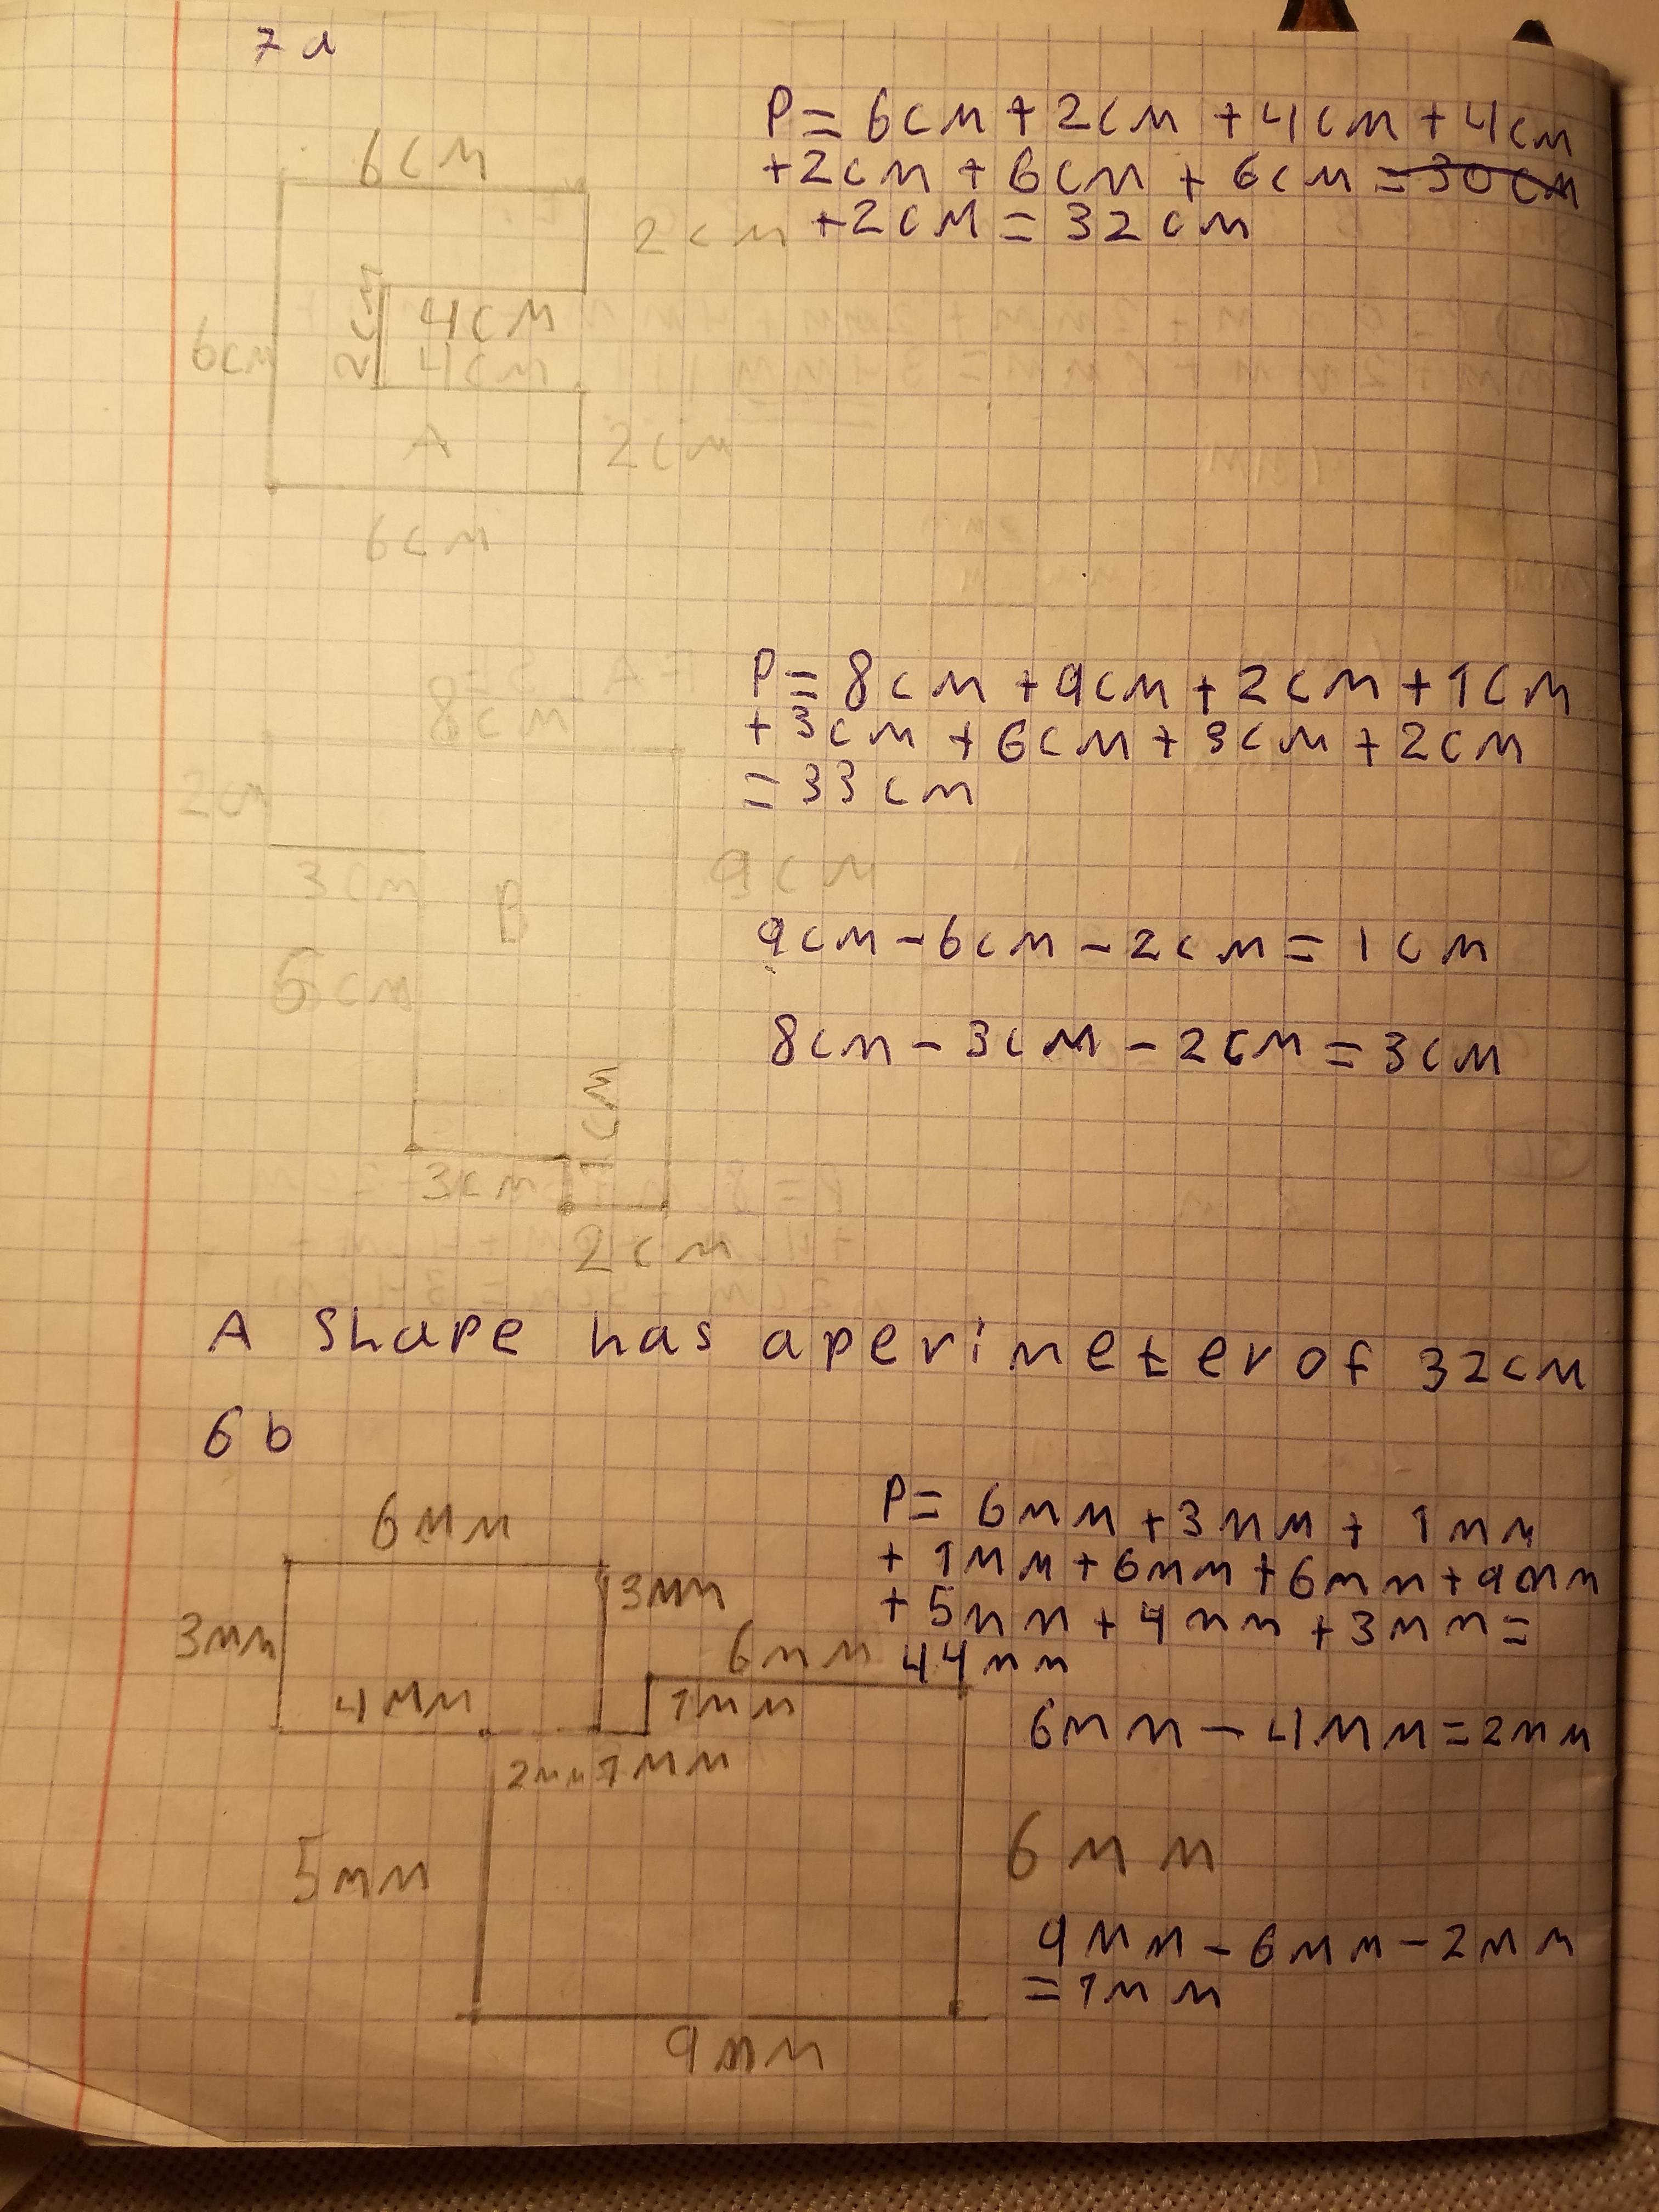 7a
P= 6cm + 2cm + 4cm + 4cm
+2cm + 6cm + 6cm = 30cm
+2cm = 32cm
6cm
2cm
2cm
4cm
6cm
4cm
A
2cm
6cm
P= 8cm + 9cm + 2cm + 1cm
+ 3cm + 6cm + 3cm + 2cm
= 33cm
8cm
2cm
3cm
B
9cm
9cm - 6cm - 2cm = 1cm
6cm
8cm - 3cm - 2cm = 3cm
1cm
3cm
2cm
A shape has a perimeter of 32cm
6b
P= 6mm + 3mm + 1mm
+ 1mm + 6mm + 6mm + 9mm
+ 5mm + 4mm + 3mm =
44mm
6mm
3mm
3mm
6mm
4mm
1mm
6mm - 4mm = 2mm
2mm 1mm
5mm
6mm
9mm - 6mm - 2mm
= 1mm
9mm